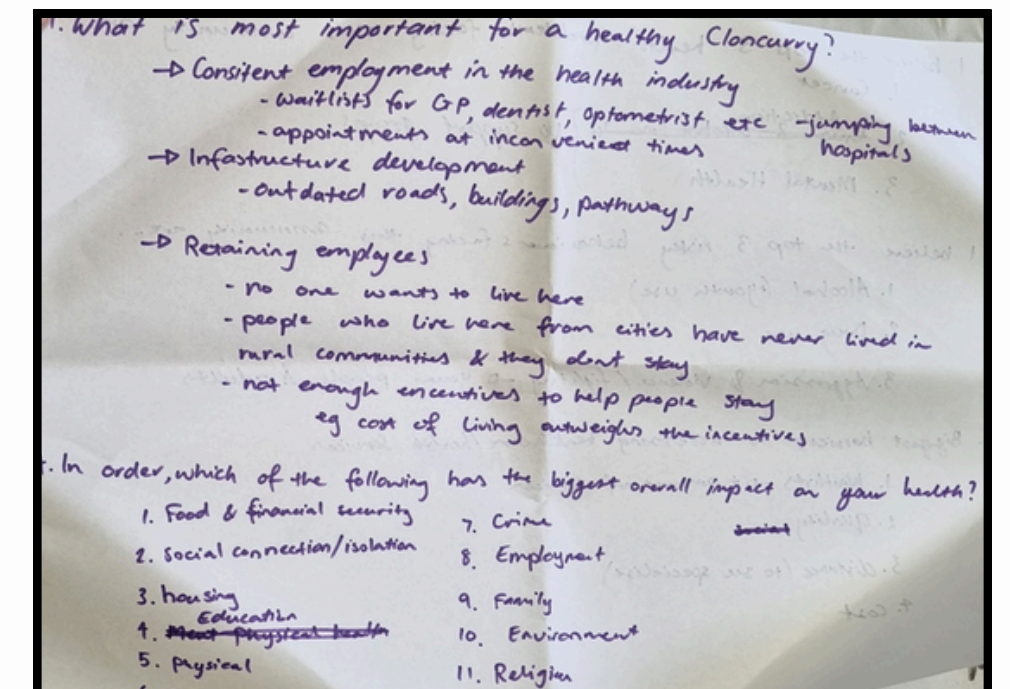 1. What is most important for a healthy Cloncurry?
→ Consitent employment in the health industry
- waitlists for GP, dentist, optometrist etc - jumping between hospitals
- appointments at inconvenient times
→ Infastructure development
- outdated roads, buildings, pathways
→ Retaining employees
- no one wants to live here
- people who live here from cities have never lived in
rural communities & they dont stay
- not enough encentives to help people stay
eg cost of living outweighs the incentives
. In order, which of the following has the biggest overall impact on your health?
1. Food & financial security
2. Social connection/isolation
3. housing
4. Education
5. Physical
7. Crime
8. Employment
9. Family
10. Environment
11. Religion